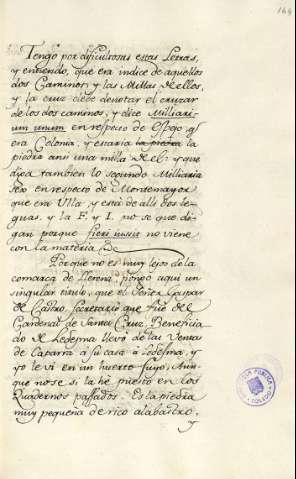 164
Tengo por dificultosas estas Letras,
y entiendo, que era indice de aquellos
dos Caminos y las Millas de ellos,
y la cruz deve denotar el cruzar
de los dos caminos, y dice Milliari-
um unum en respecto de
era Colonia, y estaria la piedra la
piedra ans una milla de el: y que
dira tambien lo segundo Milliaria
tro en respecto de Montemayor
que era Villa, y está de alli dos le-
guas, y la F, y I, no se que di-
gan porque fieri iussit no viene
con la materia
Porque no es muy lejos de la
comarca de Llerena, pongo aqui un
singular titulo, que el Señor Gaspar
de Castro, Secretario que fue de el
Cardenal de Santa Cruz, Beneficia
do de Ledesma llevó de las Ventas
de Caparra á su casa á Ledesma, y
yo le vi en un huerto suyo, Aun-
que no se si la hé puesto en los
Quadernos passados. Es la piedra
muy pequeña de rico alabastro,
y